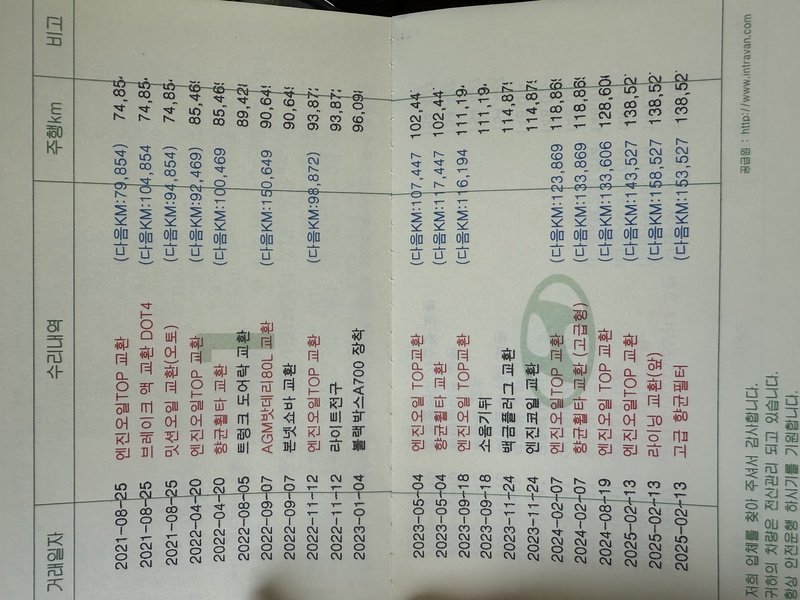 거래일자 수리내역 주행km 비고
2021-08-25 엔진오일TOP 교환 (다음KM:79,854) 74,85
2021-08-25 브레이크 액 교환 DOT4 (다음KM:104,854 74,85
2021-08-25 밋션오일 교환(오토) (다음KM:94,854) 74,85
2022-04-20 엔진오일TOP 교환 (다음KM:92,469) 85,46
2022-04-20 향균휠타 교환 (다음KM:100,469 85,46
2022-08-05 트렁크 도어락 교환 89,42
2022-09-07 AGM밧데리80L 교환 (다음KM:150,649 90,64
2022-09-07 본넷쇼바 교환 90,64
2022-11-12 엔진오일TOP 교환 (다음KM:98,872) 93,87
2022-11-12 라이트전구 93,87
2023-01-04 블랙박스A700 장착 96,09
2023-05-04 엔진오일 TOP교환 (다음KM:107,447 102,44
2023-05-04 향균휠타 교환 (다음KM:117,447 102,44
2023-09-18 엔진오일 TOP교환 (다음KM:116,194 111,19
2023-09-18 소음기뒤 111,19
2023-11-24 백금플러그 교환 114,87
2023-11-24 엔진코일 교환 114,87
2024-02-07 엔진오일 TOP 교환 (다음KM:123,869 118,86
2024-02-07 향균휠타 교환 (고급형) (다음KM:133,869 118,86
2024-08-19 엔진오일 TOP 교환 (다음KM:133,606 128,60
2025-02-13 엔진오일TOP 교환 (다음KM:143,527 138,52
2025-02-13 라이닝 교환(앞) (다음KM:158,527 138,52
2025-02-13 고급 향균필터 (다음KM:153,527 138,52
저희 업체를 찾아 주셔서 감사합니다.
귀하의 차량은 전산관리 되고 있습니다.
항상 안전운행 하시기를 기원합니다.
공급원 : http://www.intravan.com